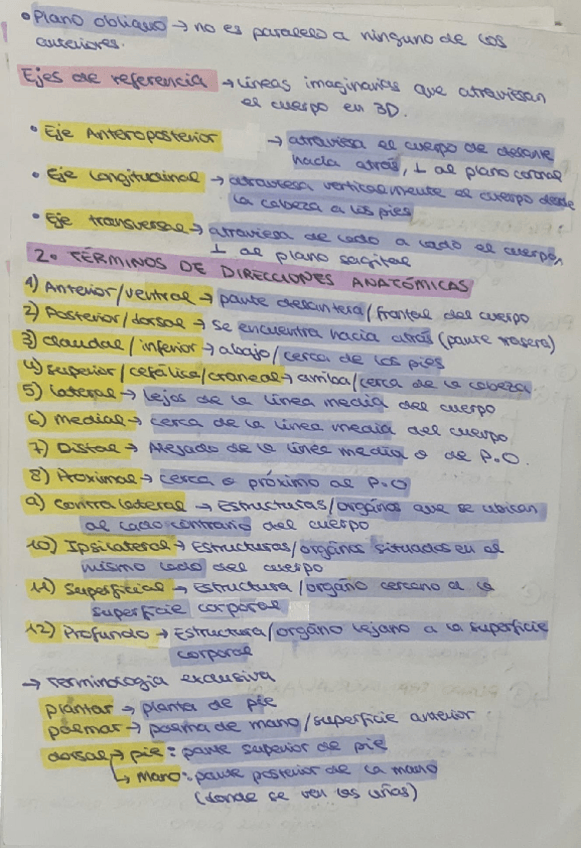 • Plano oblicuo → no es paralelo a ninguno de los
anteriores.
Ejes de referencia → Líneas imaginarias que atraviesan
el cuerpo en 3D.
• Eje Anteroposterior → atraviesa el cuerpo de delante
hacia atrás, ⊥ al plano coronal
• Eje Longitudinal → atraviesa verticalmente el cuerpo desde
la cabeza a los pies
• Eje transversal → atraviesa de lado a lado el cuerpo,
⊥ al plano sagital
2. TÉRMINOS DE DIRECCIONES ANATÓMICAS
1) Anterior/ventral → parte delantera/frontal del cuerpo
2) Posterior/dorsal → se encuentra hacia atrás (parte trasera)
3) Claudal/inferior → abajo/cerca de los pies
4) Superior/cefálico/craneal → arriba/cerca de la cabeza
5) Lateral → Lejos de la línea media del cuerpo
6) Medial → cerca de la línea media del cuerpo
7) Distal → Alejado de la línea media o de P.O.
8) Proximal → cerca o próximo al P.O
9) Contralateral → Estructuras/orgános que se ubican
al lado contrario del cuerpo
10) Ipsilateral → Estructuras/orgános situados en el
mismo lado del cuerpo
11) Superficial → Estructura/orgáno cercano a la
superficie corporal
12) Profundo → Estructura/orgáno lejano a la superficie
corporal
→ Terminología exclusiva
plantar → planta de pie
palmar → palma de mano/superficie anterior
dorsal → pie: parte superior de pie
↳ Mano: parte posterior de la mano
(donde se ven las uñas)